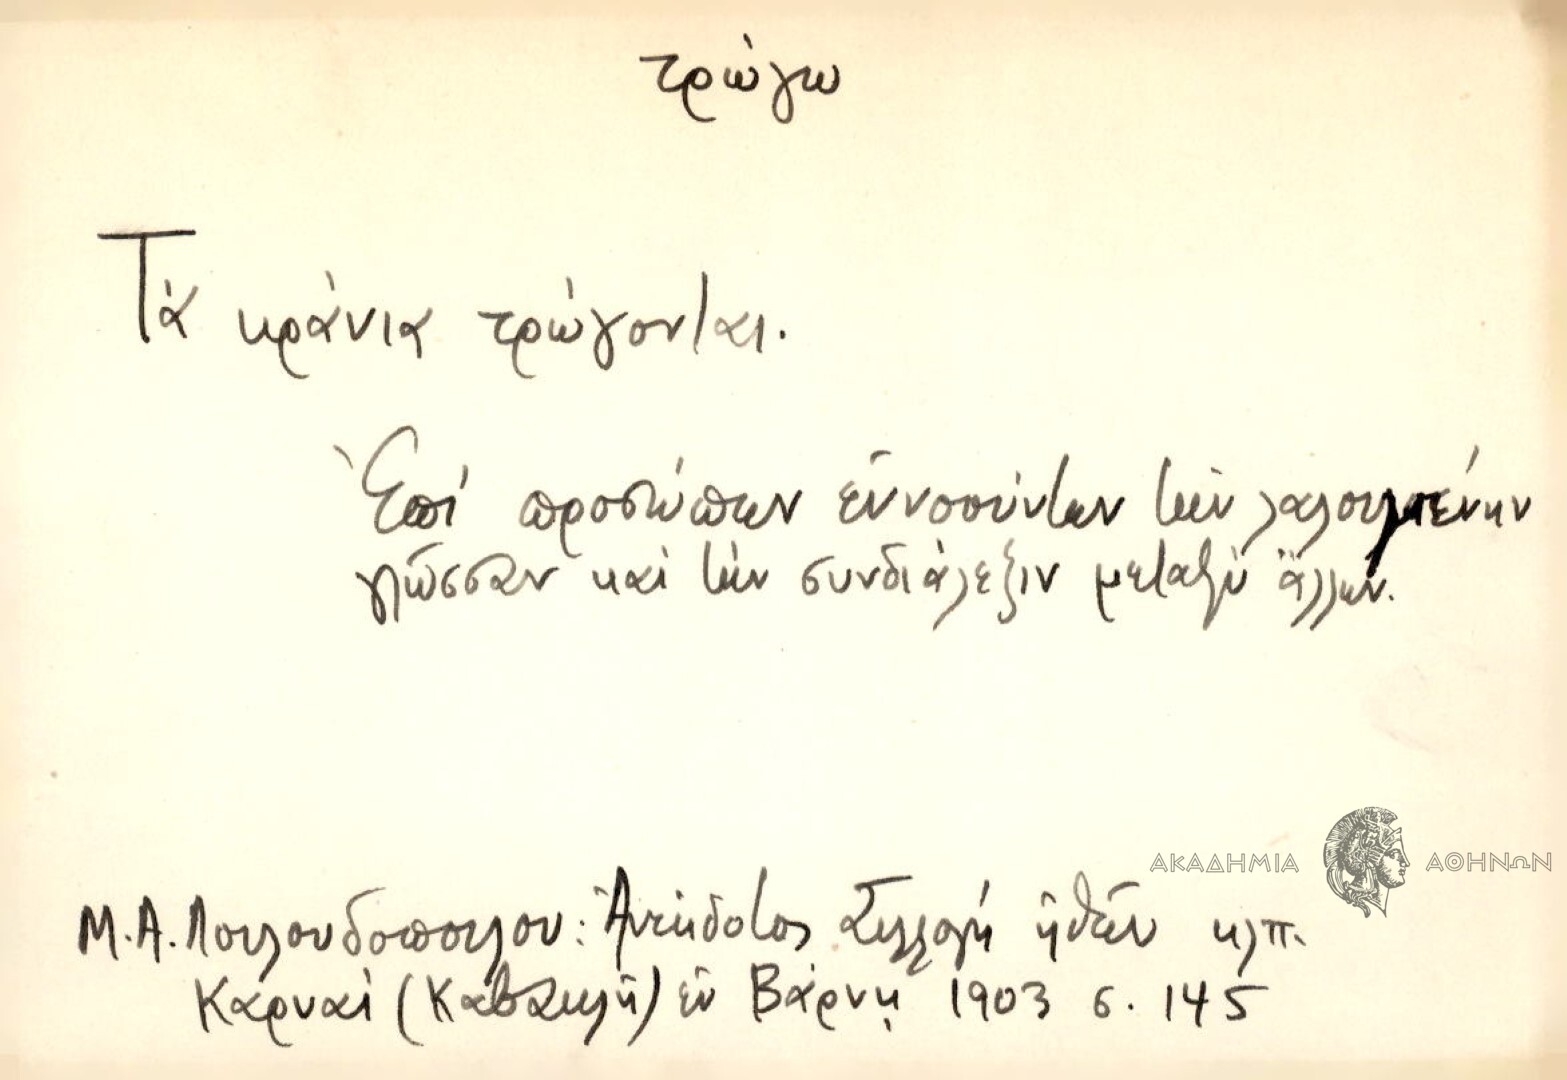 τρώγω
Τὰ κράνια τρώγονται.
Ἐπὶ προσώπων ἐννοούντων τὴν λαλουμένην
γλῶσσαν καὶ τὴν συνδιάλεξιν μεταξὺ ἄλλων.
ΑΚΑΔΗΜΙΑ ΑΘΗΝΩΝ
Μ. Α. Λουλουδοπούλου: Ἀνέκδοτος Συλλογὴ ἠθῶν κλπ.
Καρυαὶ (Καβακλῆ) ἐν Βάρνῃ 1903 σ. 145